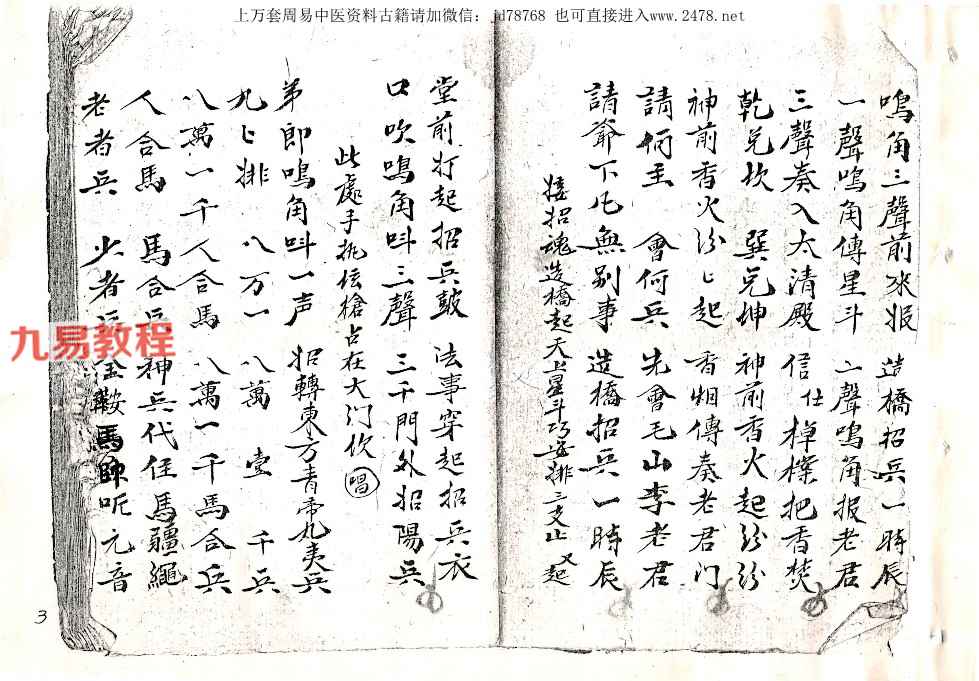 上万套周易中医资料古籍请加微信：jd78768 也可直接进入www.2478.net
鳴角三聲前來 造橋招兵一時辰
一聲鳴角傳星斗 二聲鳴角报老君
三聲奏入太清殿 信仕 把香焚
乾兑坎 巽兑坤 神前香火起纷纷
神前香火汾匕起 香烟傳奏老君门
請何主 會何兵 先會毛山李老君
請爺下凡無别事 造橋招兵一時辰
接招魂造橋起天上星斗巧安排三支止 又起
堂前打起招兵鼓 法事穿起招兵衣
口吹鳴角呌三聲 三千門外招陽兵
此處手挑坛槍占在大门坎 唱
弟郎鳴角呌一声 招轉東方青帝九夷兵
九匕排 八万一 八萬 壹 千兵
八萬一千人合馬 八萬一千馬合兵
人合馬 馬合兵 神兵代住馬疆繩
老者兵 少者 金鞍馬 呢元音
九易教程
3